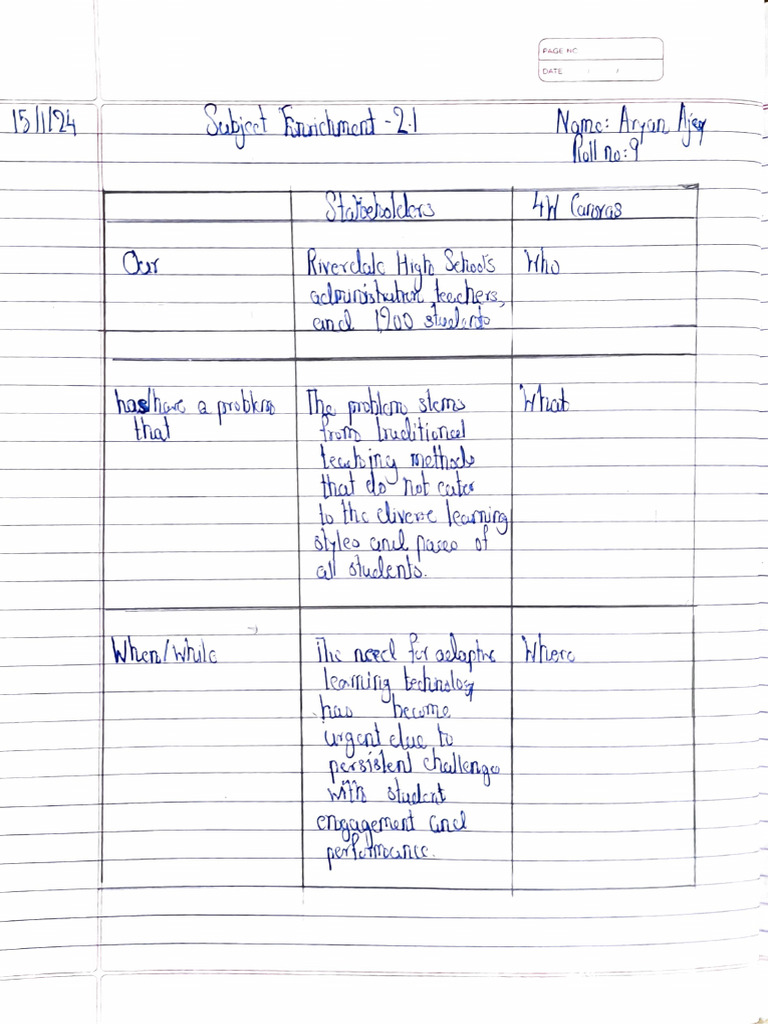 PAGE NO
DATE / /
15/1/24 Subject Enrichment -2.1 Name: Aryan Ajay
Roll no: 9
Stakeholders 4W Canvas
Our Riverdale High School's Who
administration, teachers,
and 1200 students
has/have a problem The problem stems What
that from traditional
teaching methods
that do not cater
to the diverse learning
styles and paces of
all students.
When/While The need for adaptive Where
learning technology
has become
urgent due to
persistent challenges
with student
engagement and
performance.